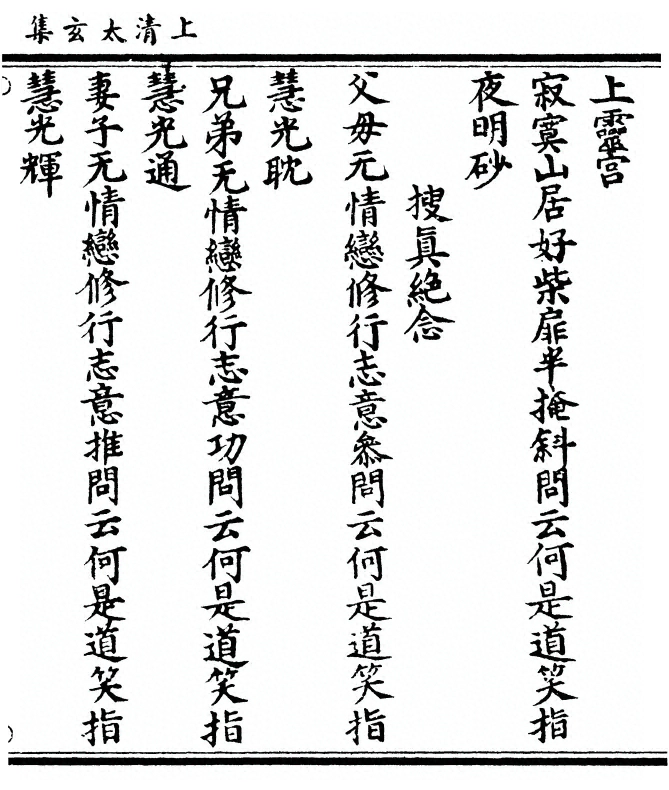 上清太玄集
上靈宮
寂寞山居好柴扉半掩斜問云何是道笑指
夜明砂
搜眞絕念
父母无情戀修行志意叅問云何是道笑指
慧光耽
兄弟无情戀修行志意功問云何是道笑指
慧光通
妻子无情戀修行志意推問云何是道笑指
慧光輝